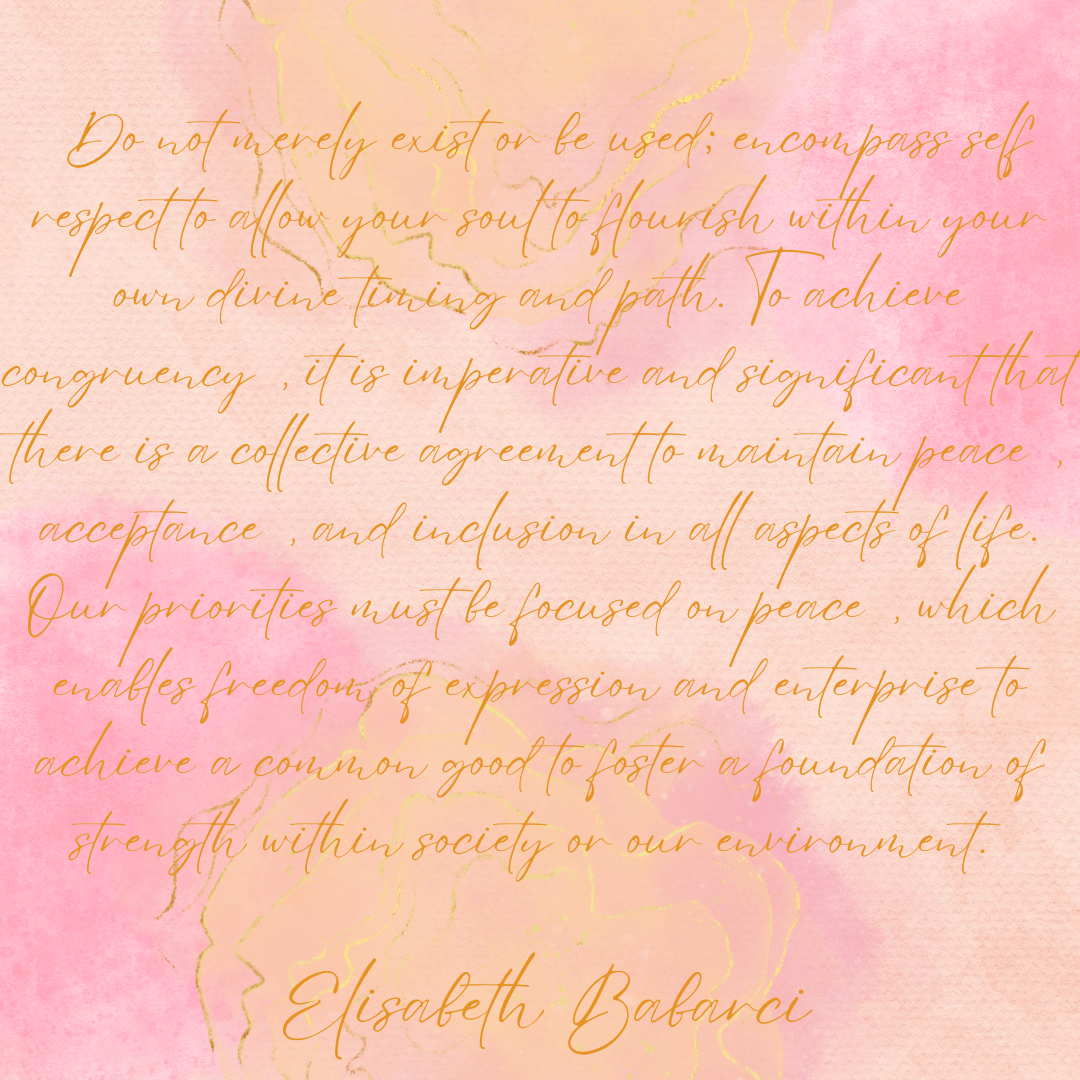 Do not merely exist or be used; encompass self
respect to allow your soul to flourish within your
own divine timing and path. To achieve
congruency , it is imperative and significant that
there is a collective agreement to maintain peace ,
acceptance , and inclusion in all aspects of life.
Our priorities must be focused on peace , which
enables freedom of expression and enterprise to
achieve a common good to foster a foundation of
strength within society or our environment.
Elisabeth Babarci